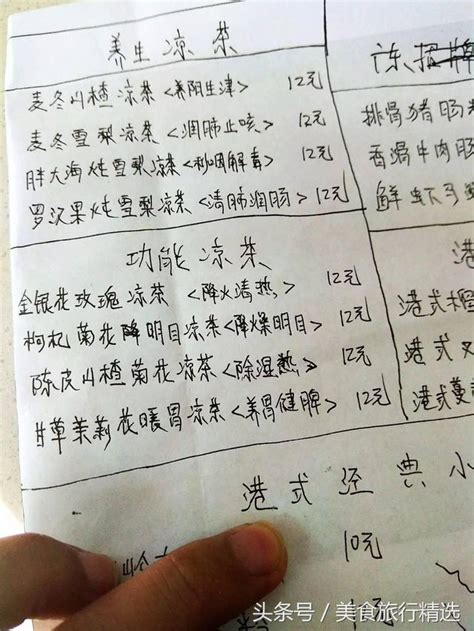 养生凉茶
麦冬山楂凉茶<养阴生津> 12元
麦冬雪梨凉茶<润肺止咳> 12元
胖大海炖雪梨凉茶<利咽解毒> 12元
罗汉果炖雪梨凉茶<清肺润肠> 12元
功能凉茶
金银花玫瑰凉茶<降火清热> 12元
枸杞菊花降明目凉茶<降燥明目> 12元
陈皮山楂菊花凉茶<除湿热> 12元
甘草茉莉花暖胃凉茶<养胃健脾> 12元
招牌
排骨猪肠
香滑牛肉肠
鲜虾
港
港式
港式
港式
港式经典小
10元
头条号 / 美食旅行精选